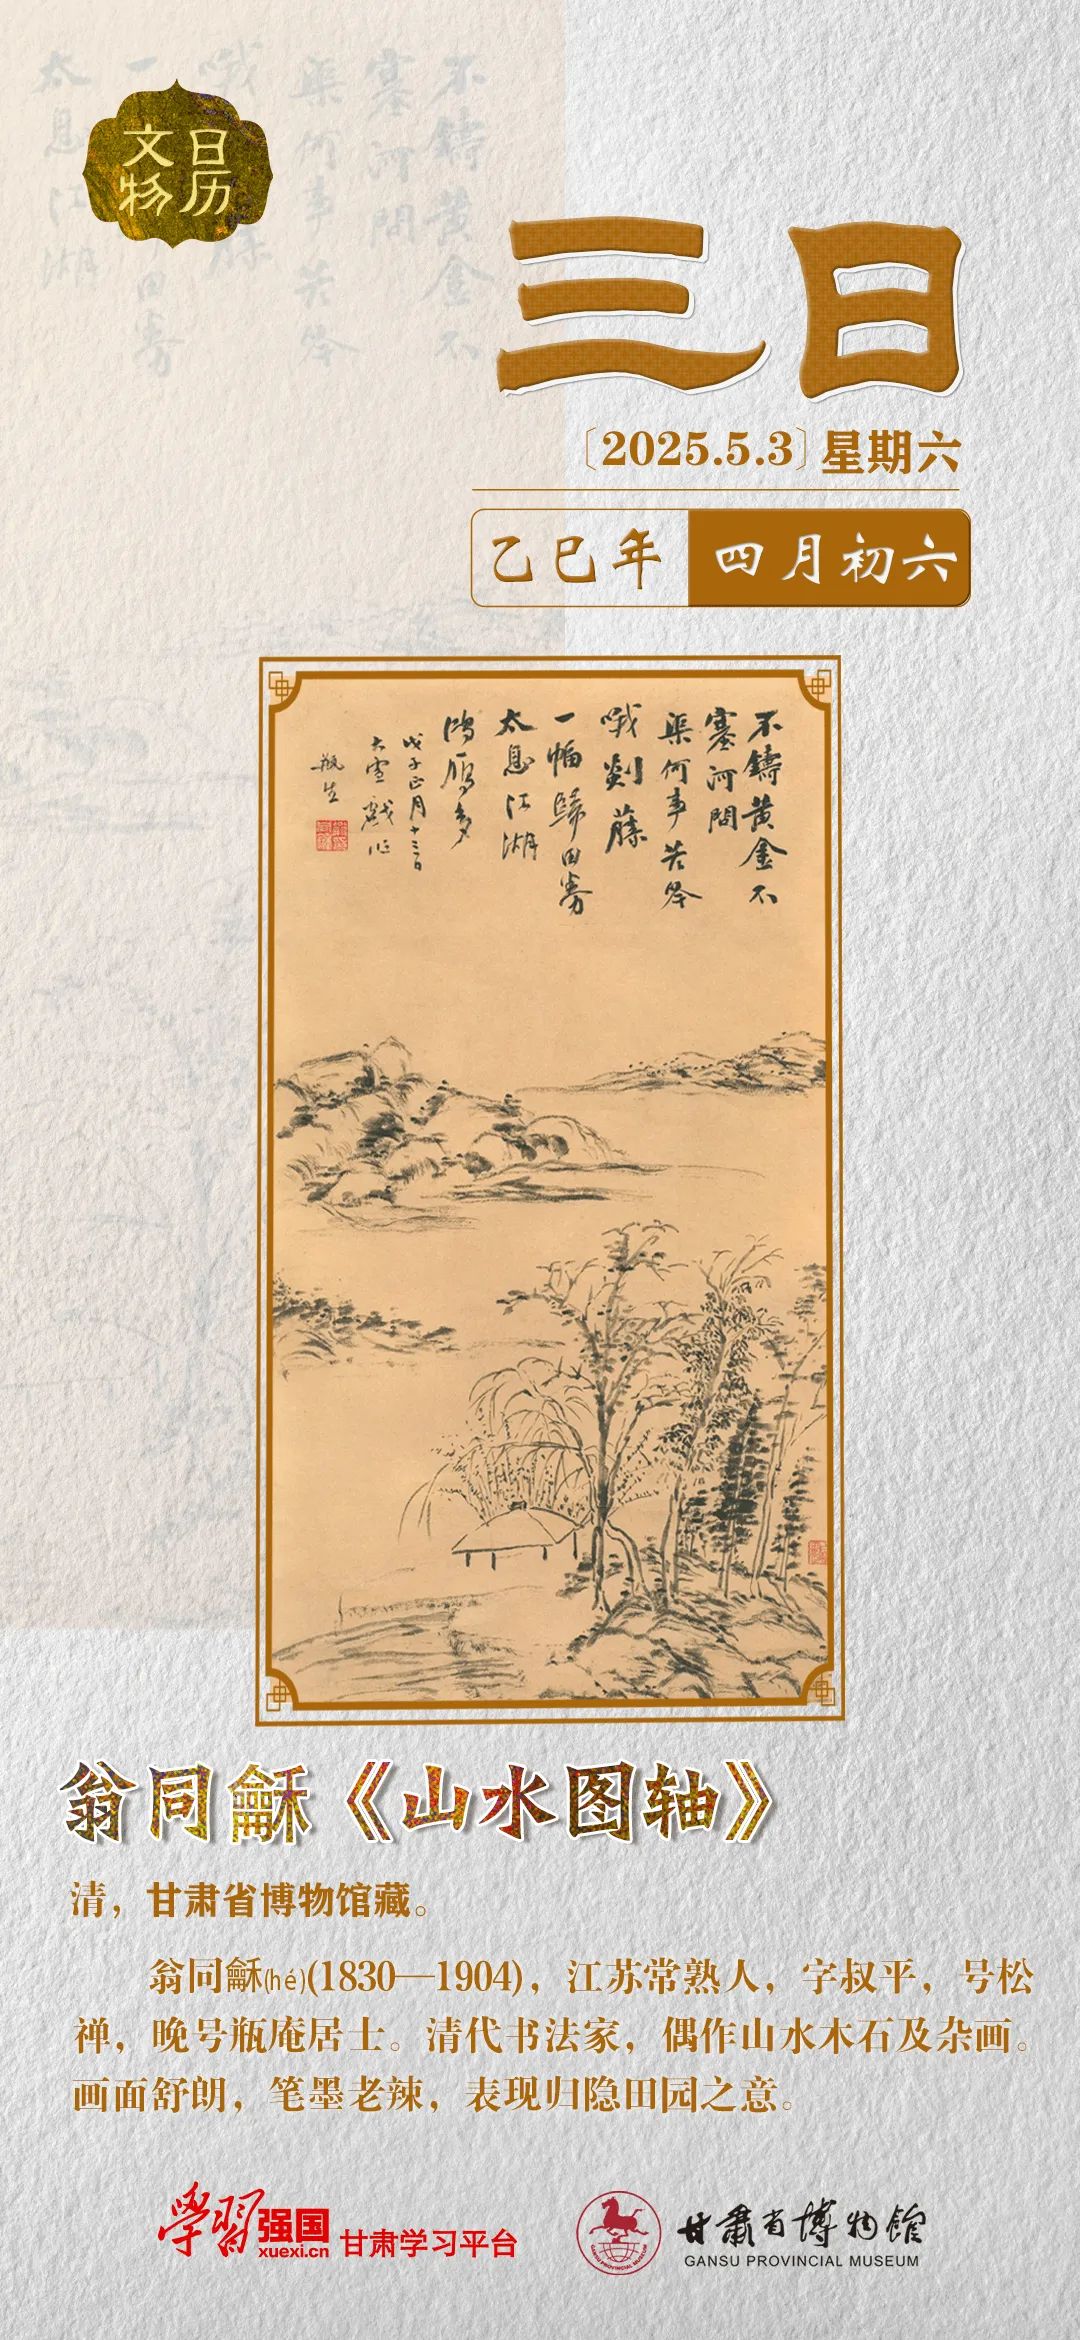 文物
日历
三日
〔2025.5.3〕星期六
乙巳年 四月初六
不鑄黃金不
塞河問
渠何事苦吟
哦剡藤
一幅歸田夢
太息江湖
鴻雁多
戊子正月十三日
大雪戲作
瓶生
翁同龢《山水图轴》
清，甘肃省博物馆藏。
翁同龢(hé)(1830—1904)，江苏常熟人，字叔平，号松
禅，晚号瓶庵居士。清代书法家，偶作山水木石及杂画。
画面舒朗，笔墨老辣，表现归隐田园之意。
学习强国
xuexi.cn
甘肃学习平台
甘肅省博物館
GANSU PROVINCIAL MUSEUM